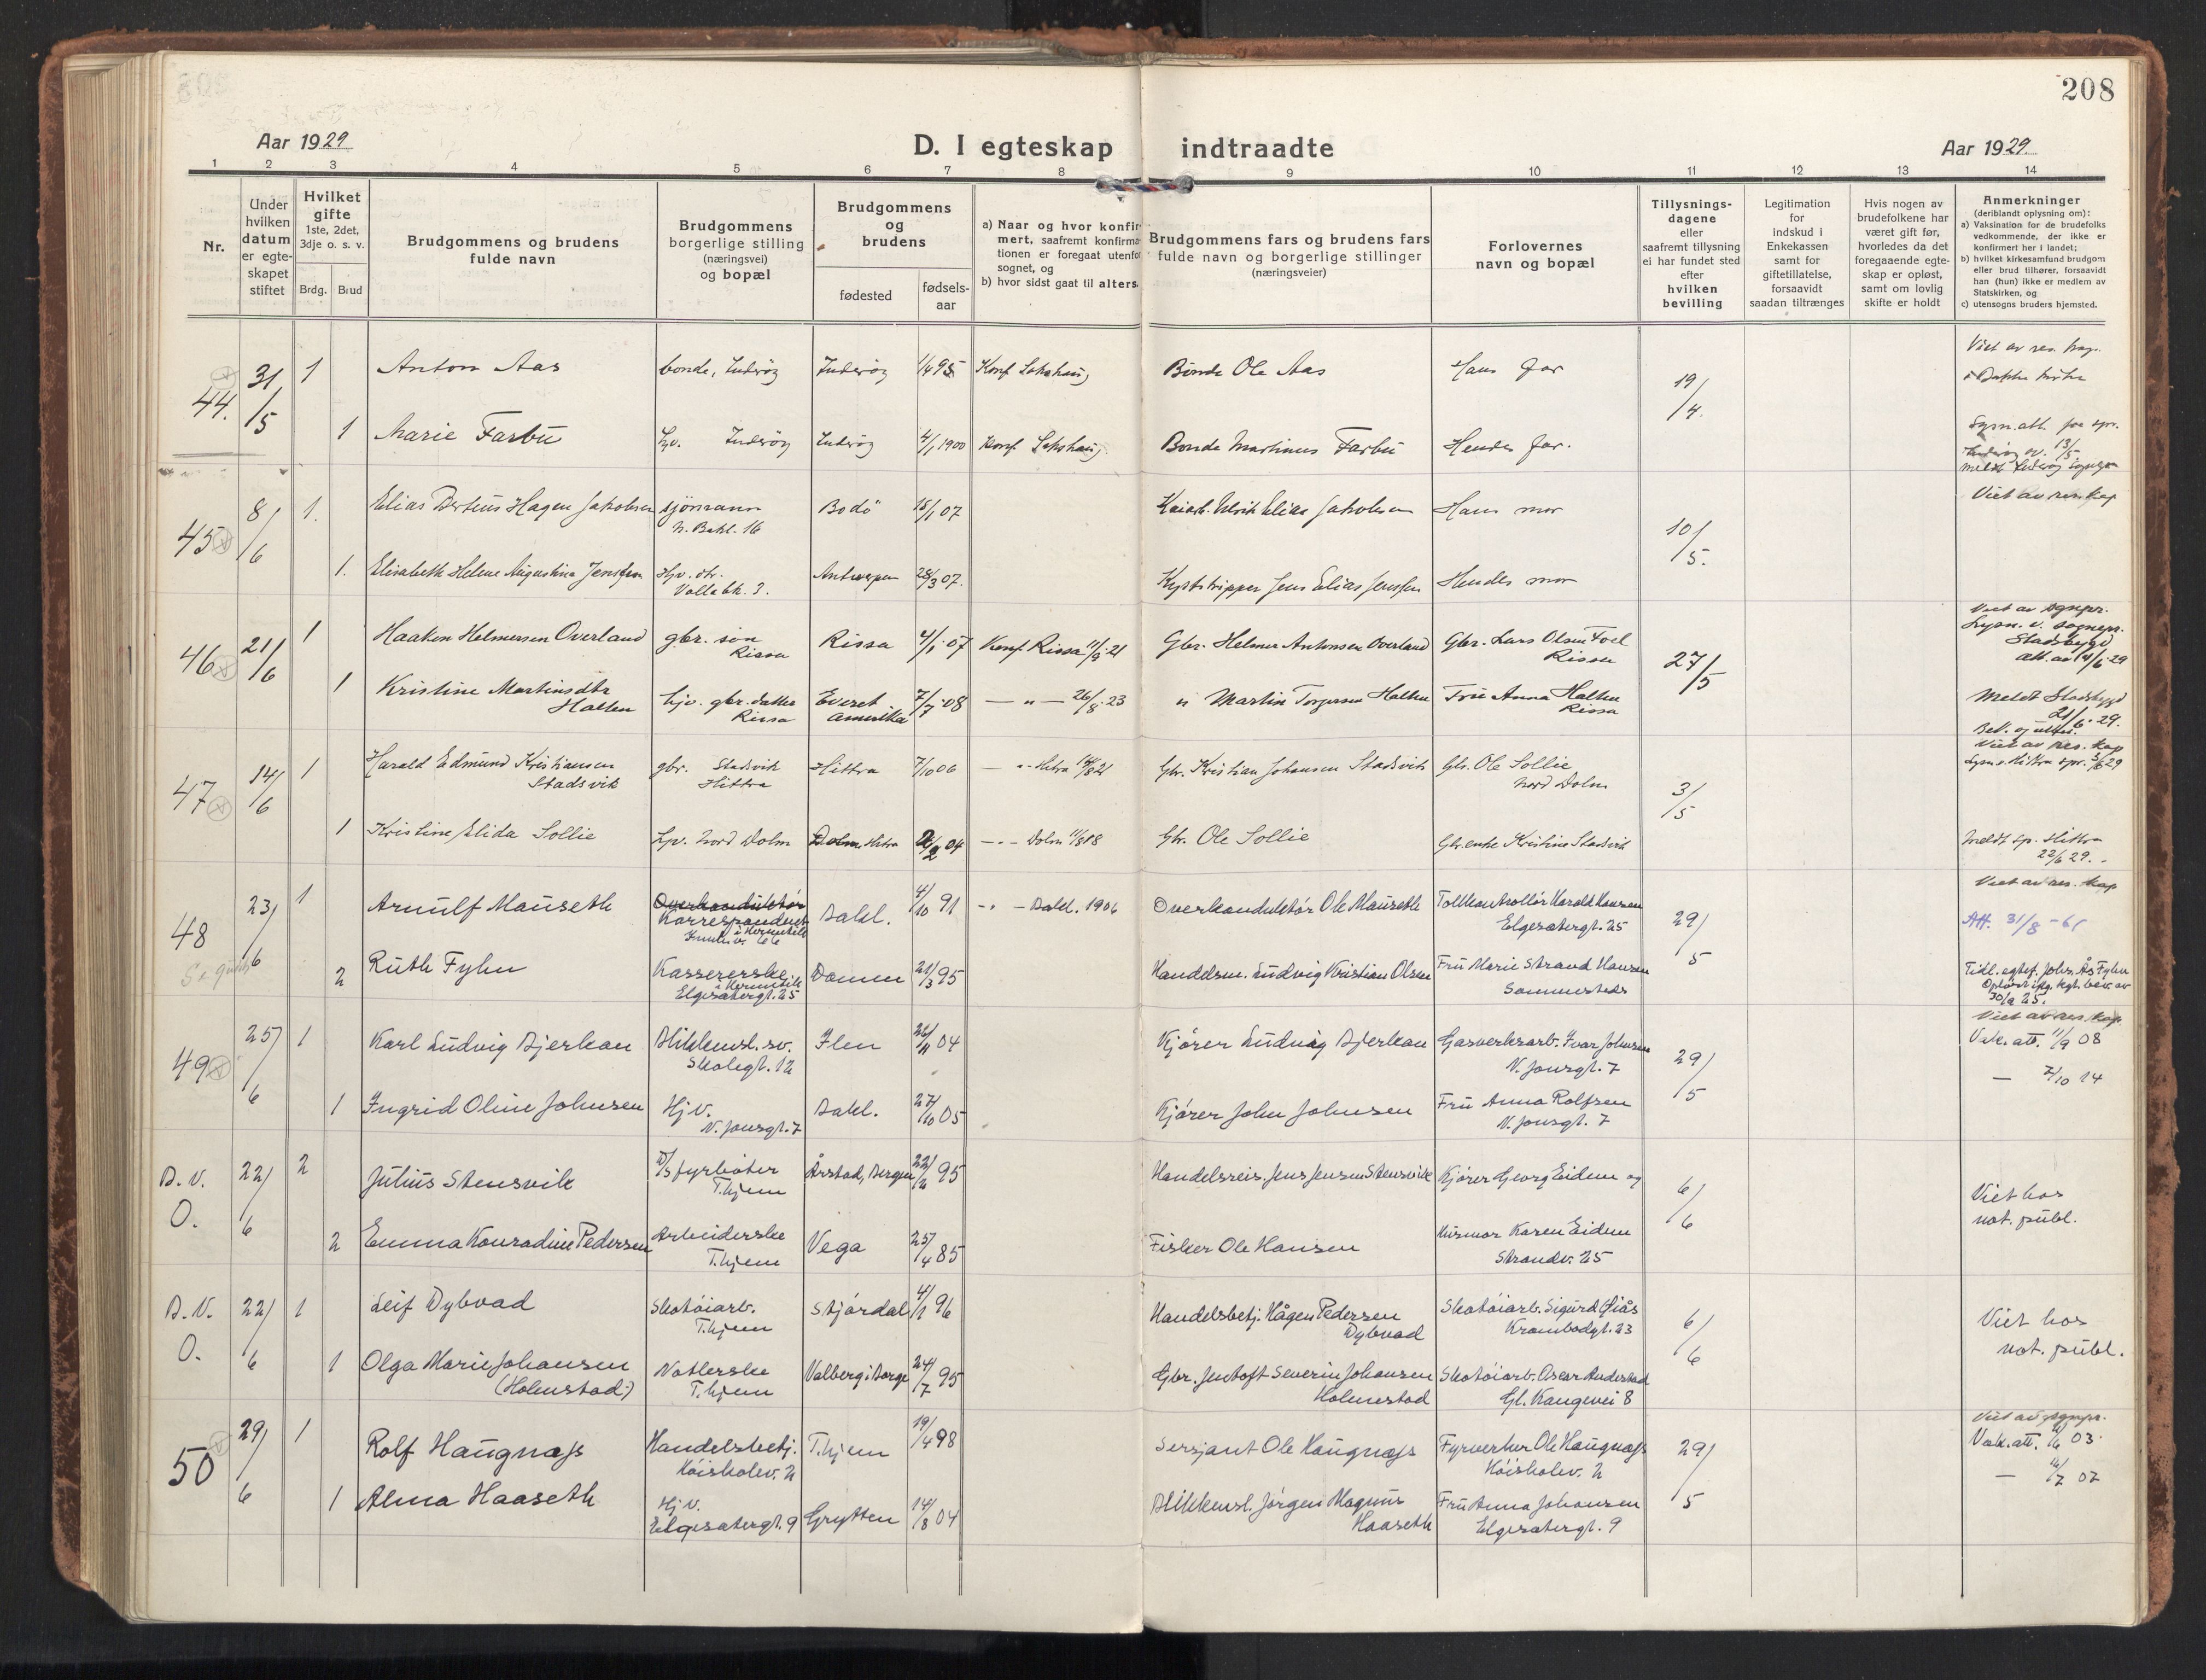 208
Aar 1929
D. I egteskap indtraadte
Aar 1929.
1 2 3 4 5 6 7 8 9 10 11 12 13 14
Nr.
Under hvilken datum er egte- skapet stiftet
Hvilket gifte 1ste, 2det, 3dje o. s. v.
Brdg. Brud
Brudgommens og brudens fulde navn
Brudgommens borgerlige stilling (næringsvei) og bopæl
Brudgommens og brudens
fødested
fødsels- aar
a) Naar og hvor konfir- mert, saafremt konfirma- tionen er foregaat utenfor sognet, og
b) hvor sidst gaat til alters.
Brudgommens fars og brudens fars fulde navn og borgerlige stillinger (næringsveier)
Forlovernes navn og bopæl
Tillysnings- dagene eller saafremt tillysning ei har fundet sted efter hvilken bevilling
Legitimation for indskud i Enkekassen samt for giftetillatelse, forsaavidt saadan tiltrænges
Hvis nogen av brudefolkene har været gift før, hvorledes da det foregaaende egte- skap er opløst, samt om lovlig skifte er holdt
Anmerkninger
(deriblandt oplysning om):
a) Vaksination for de brudefolks vedkommende, der ikke er konfirmert her i landet;
b) hvilket kirkesamfund brudgom eller brud tilhører, forsaavidt han (hun) ikke er medlem av Statskirken, og
c) utensogns bruders hjemsted.
44. 31/5 1 Anton Aas bonde, Inderøy Inderøy 1/4 95 Konf. Sakshaug Bonde Ole Aas Hans far 19/4. Viet av res. kap.
i Bakke kirke
1 Marie Farbu Hv. Inderøy Inderøy 4/1 1900 Konf. Sakshaug Bonde Martinus Farbu Hendes far. Lysn. att. fra spr.
Inderøy av 13/5
meldt Inderøy
45 8/6 1. Elias Berteus Hagen Jakobsen sjömann Bodö 15/1 07 Ulrik Elias Jakobsen Hans mor 10/5. Viet av res. kap
N. Bakl. 16
1. Elisabeth Helene Augustine Jenssen Hjv. dtr. Antwerpen 28/3 07. Jens Elias Jenssen Hendes mor
Vollabk. 3.
46 21/6 1 Haaken Helmersen Overland gbr. søn Rissa 4/1 07 Konf. Rissa 11/9 21 Gbr. Helmer Antonsen Overland Gbr. Lars Olsen Foel 27/5 Viet av sognepr.
Rissa Rissa Lysn. v. sognepr.
Stadsbygd
att. av 14/6 29
1 Kristine Martinsdtr Halten hjv. gbr. datter Everet 7/7 08 — " — 26/8 23 " Martin Torgersen Halten Fru Anna Halten Meldt Stadsbygd
Rissa Amerika Rissa 21/6 29.
47 14/6 1 Harald Edmund Kristiansen gbr. Stadsvik Hittra 7/10 06 — " Hitra 14/8 21 Gbr. Kristian Johansen Stadsvik Gbr. Ole Sollie 3/5 Viet av res. kap
Stadsvik Hittra Nord Dolm Lysn. v. Hittra spr. 5/6 29
1 Kristine Elida Sollie Hv. Nord Dolm Dolm Hitra 04 — " — Dolm 11/8 18 Gbr. Ole Sollie Gbr. enke Kristine Stadsvik Meldt sp. Hittra
22/6 29.
48 23/6 1 Arnulf Mauseth Overkonduktør Bakl. 4/10 91 — " — Bakl. 1906 Overkonduktør Ole Mauseth Tollkontrollør Harald Hansen 29/5 Viet av res. kap
Korrespondent Elgesetergt. 25 Att. 31/8 - 61
i Hermetikk
66
2 Ruth Fyhn Kassererske Domen 21/3 95 Handelsm. Ludvig Kristian Olsen Fru Marie Strand Hansen Tidl. egtef. Johs. Ås Fyhn
i Hermetikk Sammesteds
Elgesetergt. 25 30/9 25.
49 25/6 1 Karl Ludvig Bjerkan Blikkensl. sv. Ilen 04 Kjører Ludvig Bjerkan Gasverksarb. Ivar Johnsen 29/5 Viet av res. kap.
Skolegt. 12 V. Jonsgt. 7 Vak. att. 11/9 08
1 Ingrid Oline Johnsen Hjv. Bakl. 27/10 05 Kjører John Johnsen Fru Anna Rolfsen — 7/10 14
V. Jonsgt. 7 V. Jonsgt. 7
B. V. 22/6 2 Julius Stensvik D/S fyrbøter Årstad, Bergen 95 Handelsreis. Jens Jensen Stensvik Kjører Georg Eidem og 6/6 Viet hos
O. T.hjem not. publ.
2 Emma Konradine Pedersen Arbeiderske Vega 25/4 85 Fisker Ole Hansen Husmor Karen Eidem
T.hjem Strandv. 25
B. V. 22/6 1 Leif Dybvad Skotøiarb. Stjørdal 4/1 96 Handelsbetj. Hågen Pedersen Skotøiarb. Sigurd Öiås 6/6 Viet hos
O. T.hjem Dybvad Krambodgt. 23 not. publ.
1 Olga Marie Johansen Natlerske Valberg i Borge 24/7 95 Gbr. Jentoft Severin Johansen Skotøiarb. Oscar Andestad
(Holmstad) T.hjem Holmestad Gl. Kongevei 8
50 29/6 1 Rolf Haugnæss Handelsbetj. T.hjem 19/4 98 Sersjant Ole Haugnæss Fyrverker Ole Haugnæss 29/5 Viet av sognepr.
Høiskolev. 2 Høiskolev. 2 Vak. att. 03.
1 Alma Haaseth Hjv. Grytten 14/8 04 Blikkensl. Jørgen Magnus Fru Anna Johansen — 07
Elgesetergt. 9 Haaseth Elgesetergt. 9